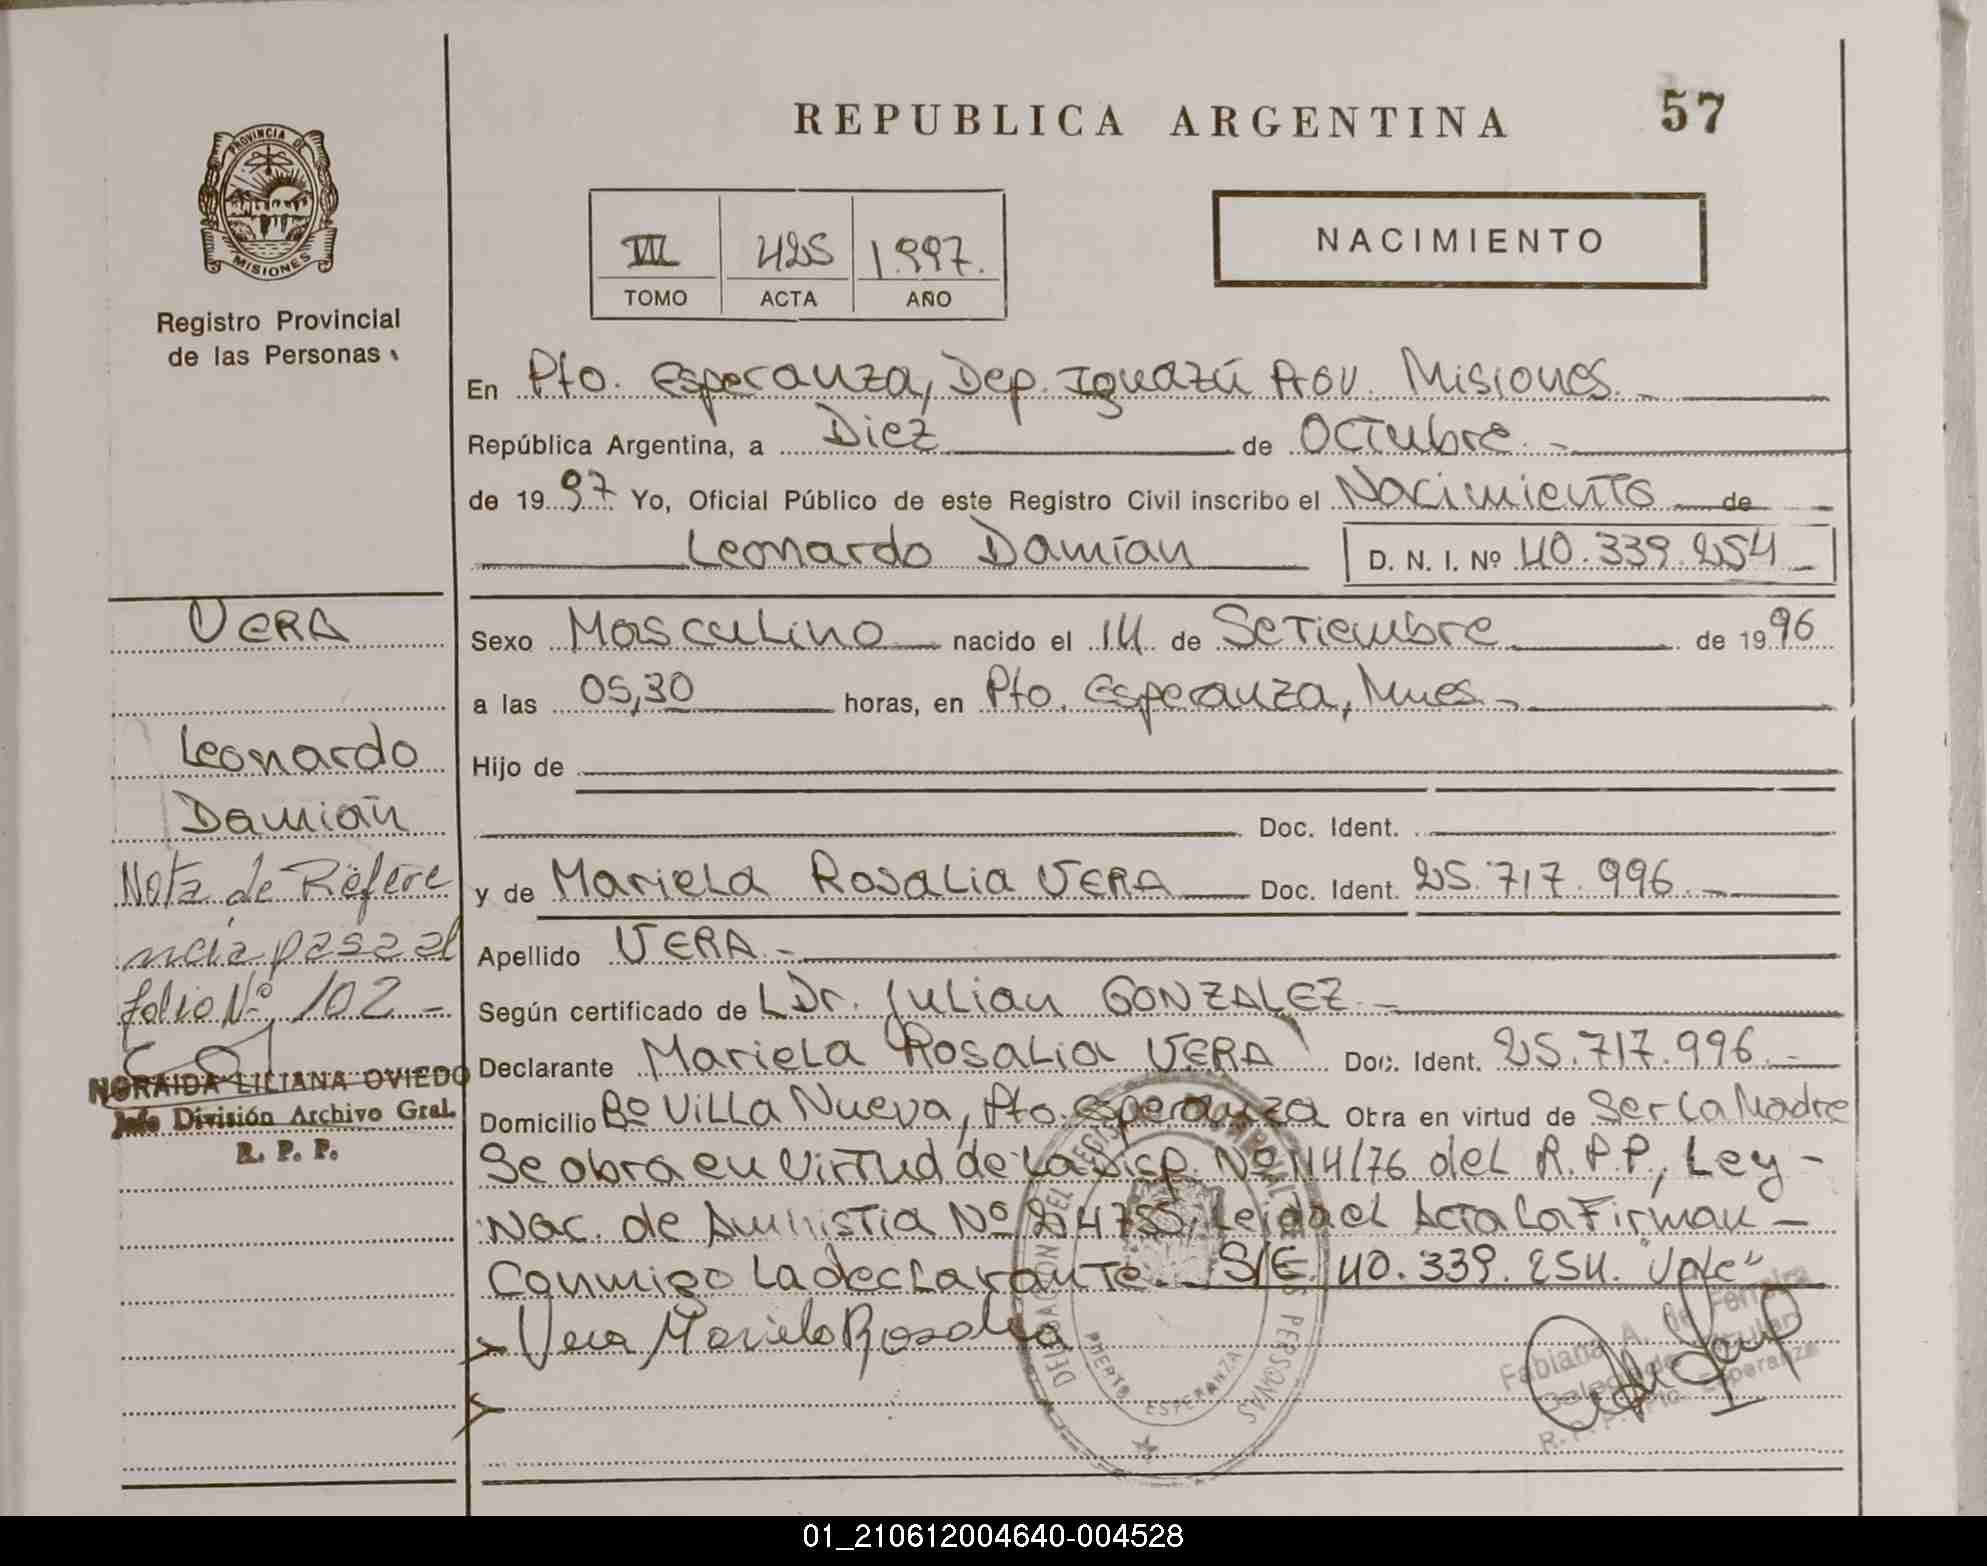 REPUBLICA ARGENTINA
57
PROVINCIA DE
MISIONES
Registro Provincial
de las Personas
VII 425 1.997.
TOMO ACTA AÑO
NACIMIENTO
En Pto. Esperanza, Dep. Iguazú Prov. Misiones.
República Argentina, a Diez de Octubre.-
de 1997 Yo, Oficial Público de este Registro Civil inscribo el Nacimiento de
Leonardo Damián D. N. I. Nº 40.339.254
Sexo Masculino nacido el 14 de Setiembre de 1996
a las 05,30 horas, en Pto. Esperanza, Mnes.-
Hijo de
Doc. Ident.
y de Mariela Rosalia VERA Doc. Ident. 25.717.996.-
Apellido VERA.-
Según certificado de L Dr. Julian GONZALEZ.-
Declarante Mariela Rosalia VERA Doc. Ident. 25.717.996.-
Domicilio Bº Villa Nueva, Pto. Esperanza Obra en virtud de Ser La Madre
Se obra en Virtud de la Disp. Nº 114/76 del R.P.P., Ley-
Nac. de Amnistia Nº 24755, Leida el Acta la Firman-
Conmigo La declarante. S/E. 40.339.254. "Vale"
Vera Mariela Rosalia
VERA
Leonardo
Damián
Nota de Refere
ncia pasa al
folio Nº 102-
NORAIDA LILIANA OVIEDO
Jefe División Archivo Gral.
R. P. P.
DELEGACION DEL REGISTRO
PERSONAS
PUERTO ESPERANZA
Fabiana A. de Ferreira
R. P. P. Pto. Esperanza
01_210612004640-004528